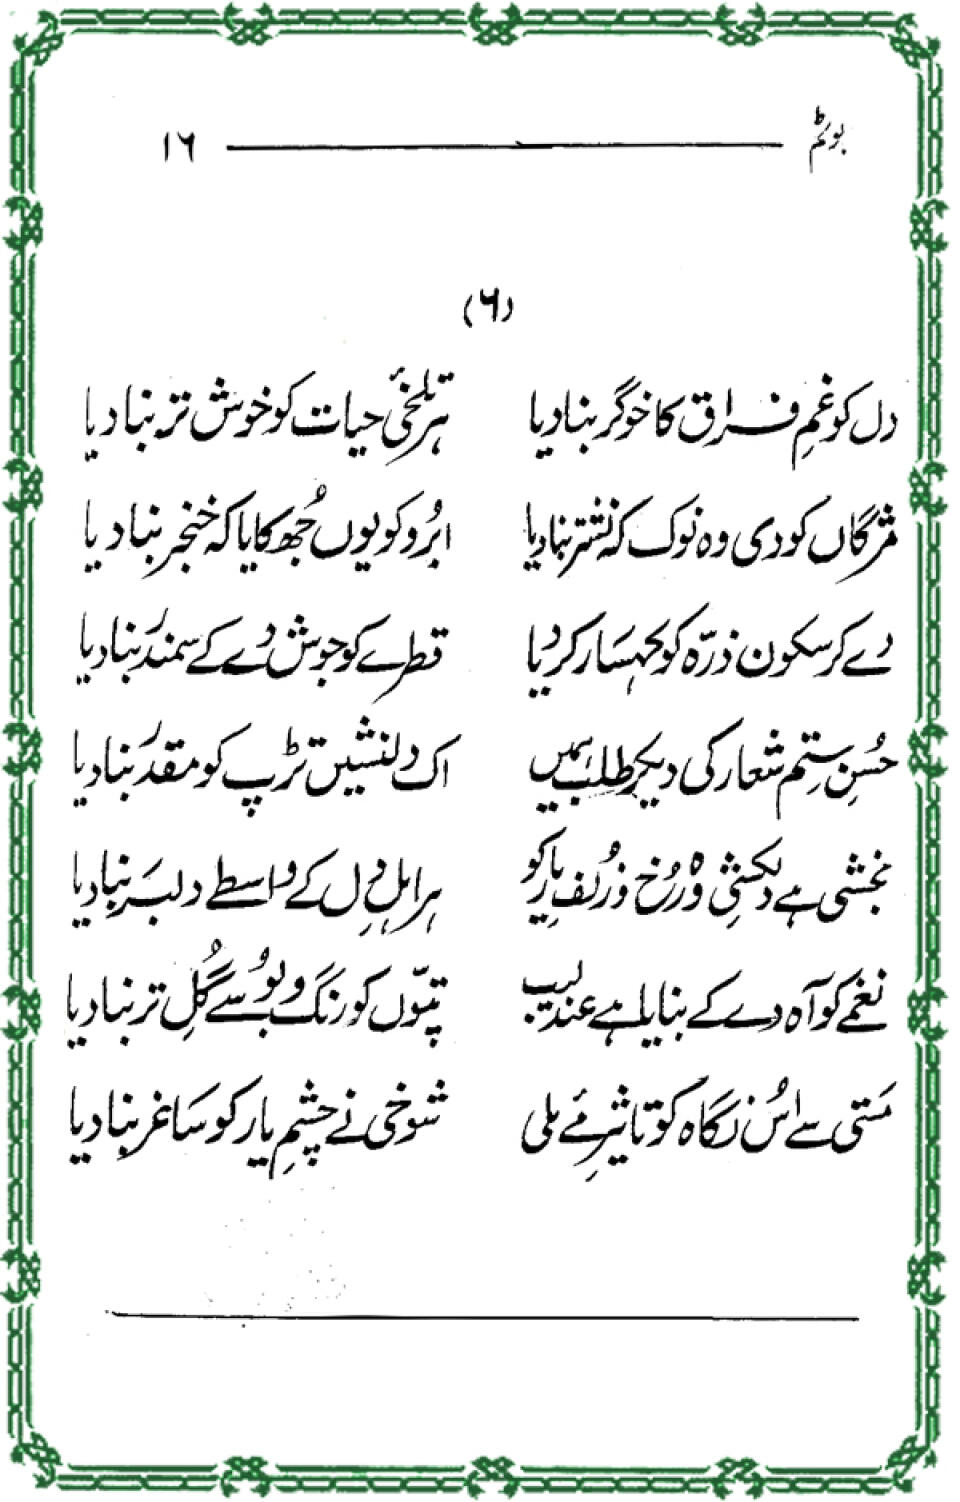 ۱۶
(۶)
دل کو غمِ فراق کا خوگر بنا دیا ہر تلخئ حیات کو خوش تر بنا دیا
مژگاں کو دی وہ نوک کہ نشتر بنا دیا ابرُو کو یوں جُھکایا کہ خنجر بنا دیا
دے کر سکون ذرّہ کو کہسار کر دیا قطرے کو جوش دے کے سمندر بنا دیا
حُسنِ ستم شعار کی دیکر طلب ہمیں اک دلنشیں تڑپ کو مقدّر بنا دیا
بخشی ہے دلکشی وہ رُخ و زُلفِ یار کو ہر اہلِ دل کے واسطے دلبر بنا دیا
نغمے کو آہ دے کے بنایا ہے عندلیب پتّوں کو رنگ و بُو سے گُلِ تر بنا دیا
مستی سے اُس نگاہ کو تاثیرِ مئے ملی شوخی نے چشمِ یار کو ساغر بنا دیا